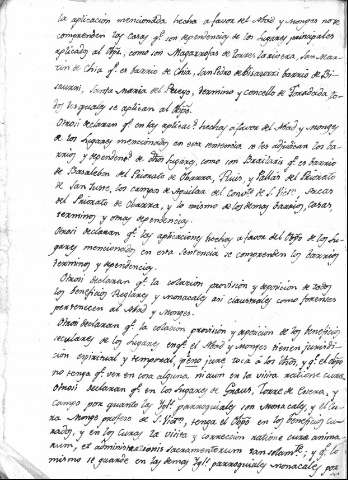 la aplicacion mencionada hecha a favor del Abad y Monges no se
comprenden las casas qe. son dependencias de los lugares principales
aplicados al Obpo. como son Magarrofas de Torres la rivera, San Mar-
tin de Chia qe. es barrio de Chia, San Pedro de Bisaurri barrio de Bi-
saurri, Santa Maria del Pueyo, termino y concello de Foradada, to-
dos los quales se aplican al Obpo.
Otrosi declaran qe. en las aplicaes. hechas a favor del Abad y Monges
de los Lugares mencionados en esta sentencia se les adjudican los ba-
rrios y dependenas. de dichos lugares, como son Brailans qe. es barrio
de Baraleben del Priorato de Obarra, Ruis y Pallas del Priorato
de San Juste, los campos de Aguilar del Convto. de S. Vicn.,
del Priorato de Obarra, y lo mismo de los demas barrios, casas,
terminos y otras dependencias.
Otrosi declaran qe. las aplicaciones hechas a favor del Obpo de los Lu-
gares mencionados en esta Sentencia se comprenden los barrios
terminos y dependencias.
Otrosi declaran qe. la colacion provision y disposicion de todos
los beneficios seculares y monacales asi claustrales como forenses
pertenecen al Abad y Monges.
Otrosi declaran qe. la colacion provision y disposicion de los beneficios
seculares de los Lugares en qe. el Abad y Monges tienen jurisdi-
cion espiritual y temporal, pleno jure toca a los dichos, y qe. el Obpo
no tenga qe. ver en cosa alguna ni aun en la visita ratione cura.
Otrosi declaran qe. en los Lugares de Graus, Torre de Esera, y
campo por quanto las Yglas. parroquiales son Monacales, y el Cu-
ra Monge profeso de S. Victn., tenga el Obpo en los beneficios cu-
rados, y en los Curas la visita y correccion ratione cura anima-
rum, et administrationis sacramentorum tan solamte.; y qe. lo
mismo se guarde en las demas Yglas. parroquiales monacales, por